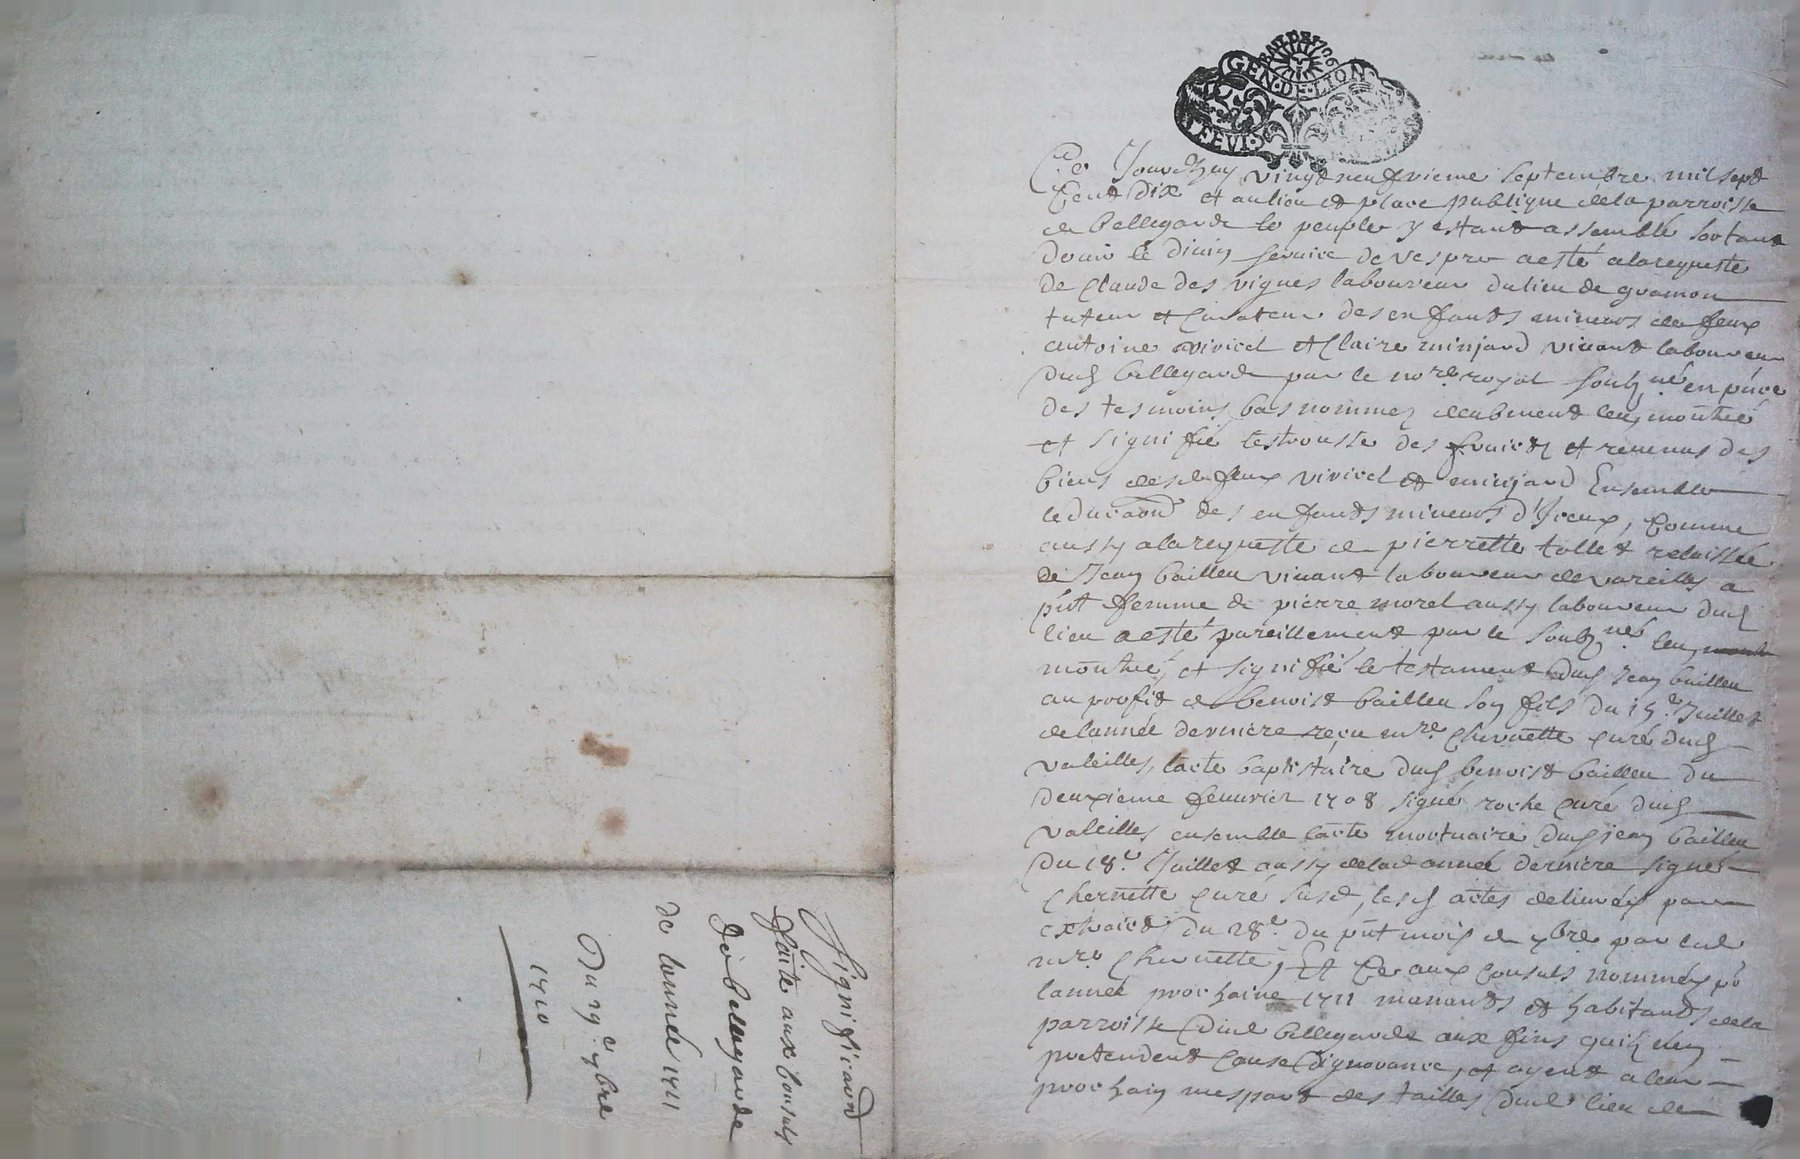 BAUX DE 1706
GEN·DE·LION
Ce Jourdhuy vingtneufvieme septembre mil sept
Cent dix et au lieu et place publique de la parroisse
de bellegarde le peuple y estant assemblé sortant
douir le divin service de vespre a esté a la requeste
de Claude des vignes laboureur du lieu de gramon
tuteur et Curateur des enfants mineurs de feux
antoine viricel et Claire minjard vivant laboureur
dud bellegarde par le nore royal soubz né en pñce
des tesmoins bas nommez deubment leu, montré
et signiffié les des fruicts et revenus des
biens desd feux viricel et minjard Ensemble
des enfants mineurs d'Iceux, Comme
aussy a la requeste de pierrette tollet relaissée
de Jean bailleu vivant laboureur de valeilles a
pñt femme de pierre morel aussy laboureur dud
lieu a esté pareillement par le soubz né leu
montré, et signiffié le testament dud Jean bailleu
au proffit de benoist bailleu son fils du 15e Juillet
de lannée derniere reçu mre Chernette curé dud
valeilles, lacte baptistaire dud benoist bailleu du
deuxieme feuvrier 1708 signé roche curé dud
valeilles ensemble lacte mortuaire dud jean bailleu
du 18e Juillet aussy de lad année derniere signé
Chernette curé susd, lesd actes delivréz par
extraicts du 28e du pñt mois de 7bre par led
mre Chernette, Et Ce aux Consuls nomméz pr
lannée prochaine 1711 manants et habitants de la
parroisse dud bellegarde aux fins quilz nen
pretendent Cause dignorance, et ayent a leur
prochain mespart des tailles dud lieu de
Signiffica̅on
faite aux Consuls
de bellegarde
de lannée 1711
Du 29e 7bre
1710